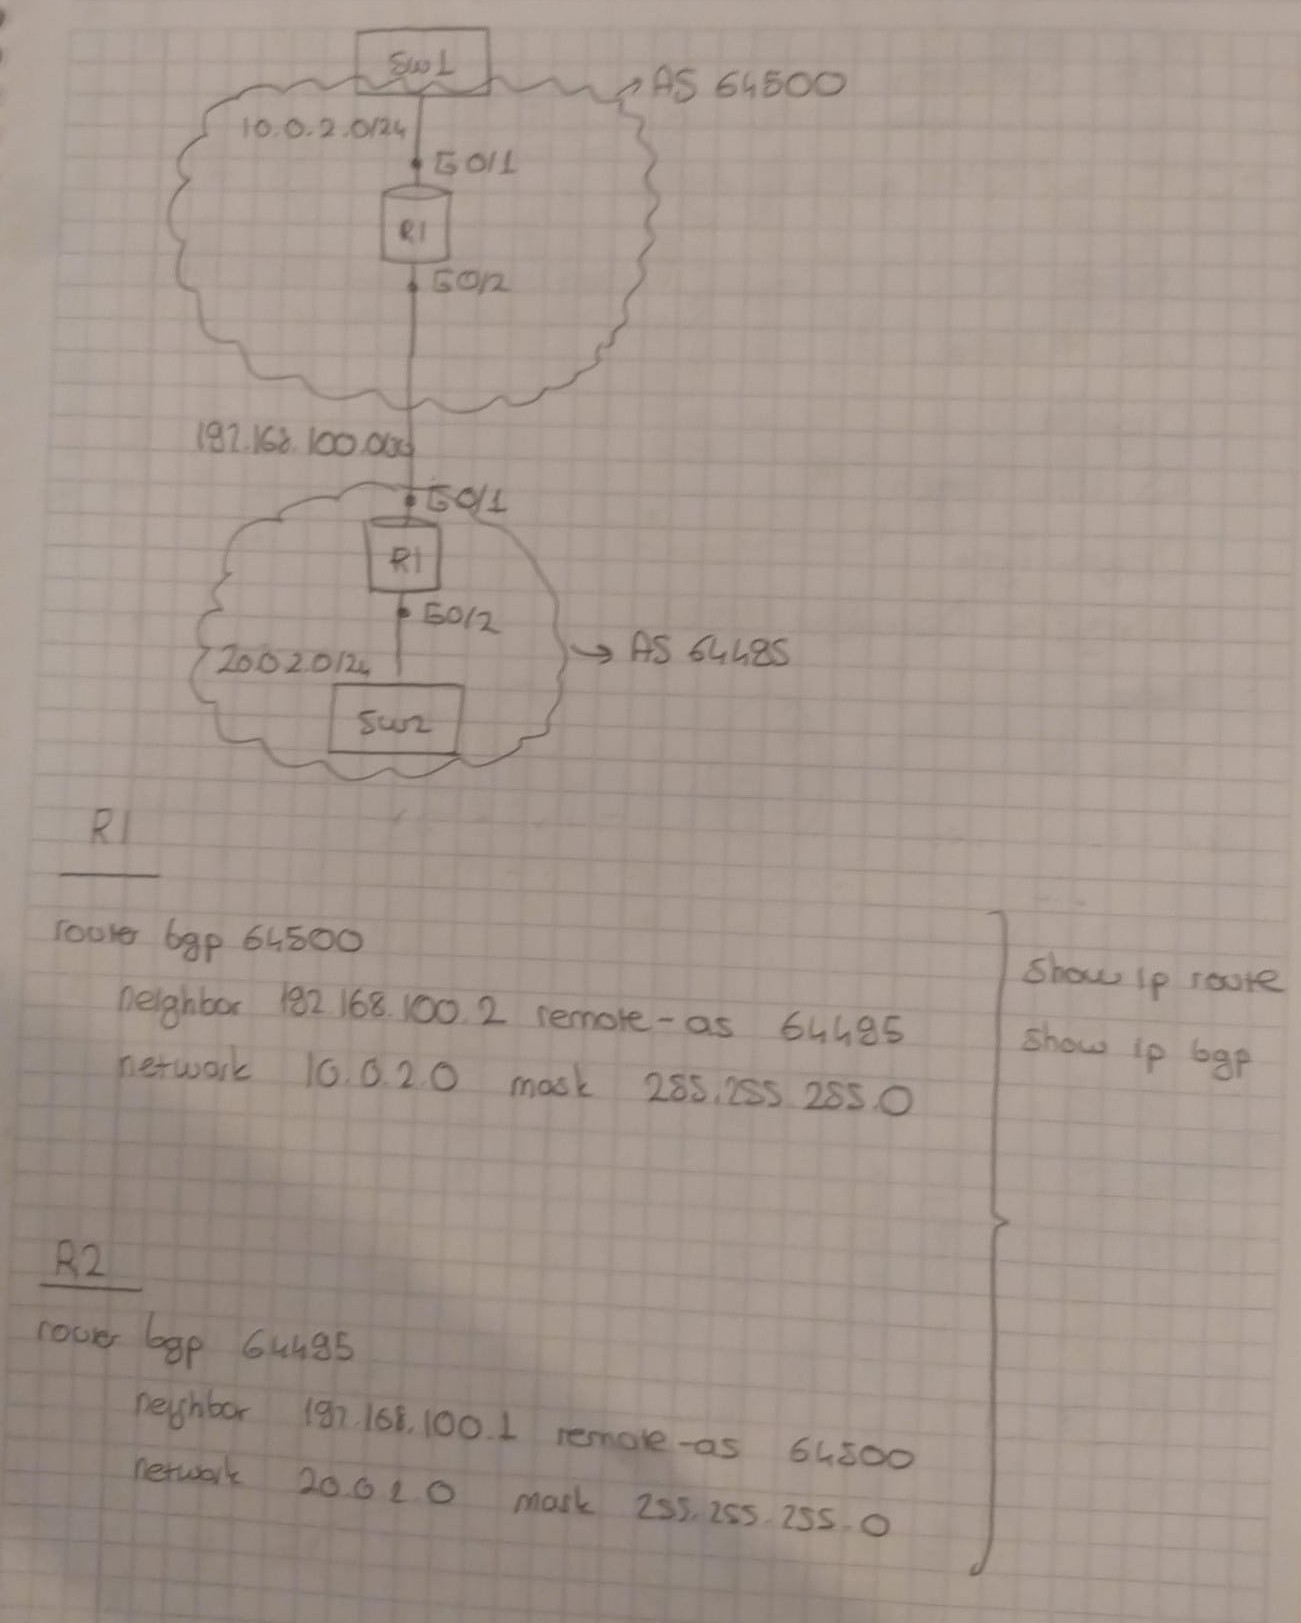 SW1
AS 64500
10.0.2.0/24
G0/1
R1
G0/2
192.168.100.0
G0/1
R1
G0/2
AS 64495
20.0.2.0/24
SW2
R1
router bgp 64500
neighbor 192.168.100.2 remote-as 64495
network 10.0.2.0 mask 255.255.255.0
show ip route
show ip bgp
R2
router bgp 64495
neighbor 192.168.100.1 remote-as 64500
network 20.0.2.0 mask 255.255.255.0